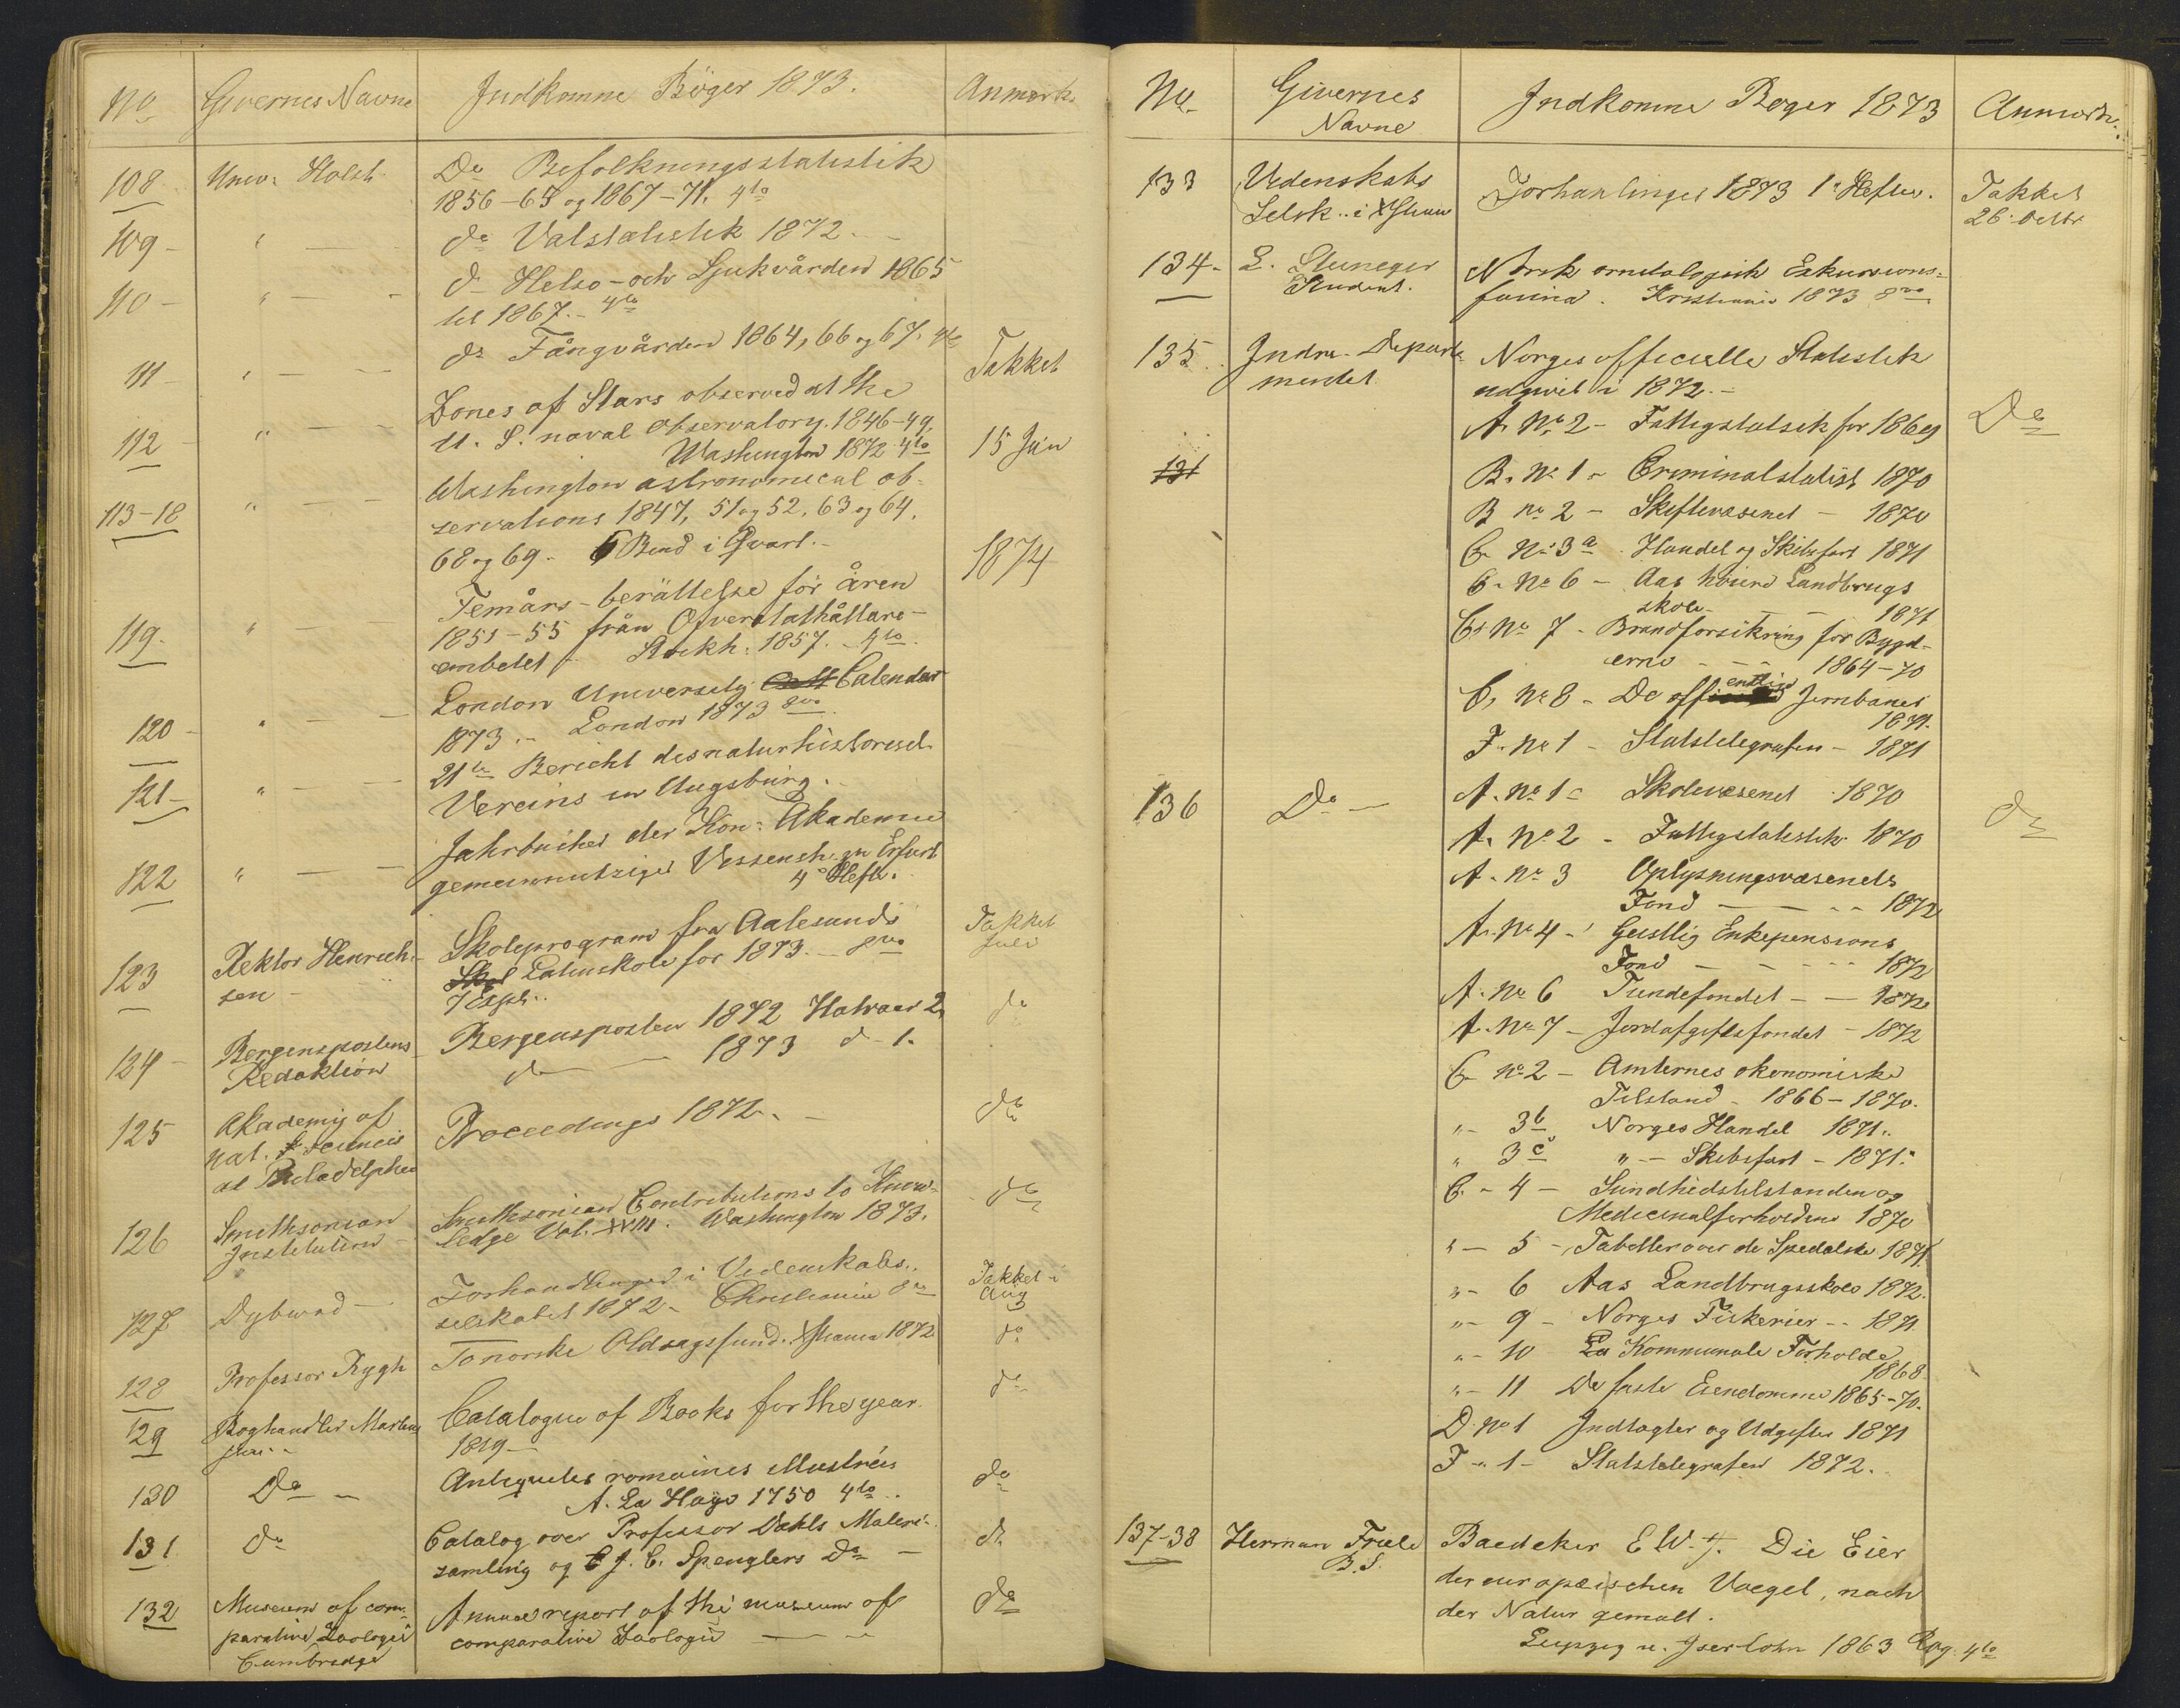 No Givernes Navne Indkomne Böger 1873. Anmærk.
108 Univ. Holst Do Befolkningsstatistik
1856-65 og 1867-71. 4to
109 - " — do Valstatistik 1872. -
110 - " — - do Helso- och Sjukvården 1865
til 1867. - 4to
111 - " — — do Fångvården 1864, 66 og 67. 4to Takket
112 " — - Zones of Stars observed at the
U. S. naval observatory. 1846-49.
Washington 1872 4to 15 Jan
113-18 " — - Washington astronomical ob-
servations 1847, 51 og 52, 63 og 64,
68 og 69. 6 Bind i Qvart. - 1874
119. " — Femårs-berättelse för åren
1851-55 från Öfverståthållare-
embetet - Stockh. 1857. - 4to.
120 - " — - London University Calendar
1873. - London 1873 8vo.
121 - " — - 21te Bericht des naturhistorisch.
Vereins in Augsburg.
122 " — - Jahrbücher der Kön. Akademie
gemeinnütziger Wissensch. zu Erfurt
4° Heft.
123 Rektor Henrich-
sen - Skoleprogram fra Aalesunds
Latinskole for 1873. - 8vo
7 Expl. Takket
Juli
124 - Bergenspostens
Redaktion Bergensposten 1872 Halvaar 2,
do — 1873 do 1. do
125 Akademy of
nat. Sciences
at Philadelphia Proceedings 1872. - do
126 Smithsonian
Institution - Smithsonian Contributions to Know-
ledge Vol. XVIII. Washington 1873. do
127 Dybwad — Forhandlinger i Videnskabs..
selskabet 1872 - Christiania 8vo Takket i
Aug
128 Professor Rygh To norske Oldsagsfund. Xstiania 1872 do
129 Boghandler Martens
Catalogue of Books for the year
1819 — do
130 Do - Antiquités romaines illustrées
A. La Haye 1750 4to.. do
131 do Catalog over Professor Dahls Maleri-
samling og J. C. Spenglers Do - do
132 Museum of com-
parative Zoologie
Cambridge Annual report of the museum of
comparative Zoologie — — do
No. Givernes
Navne Indkomne Boger 1873 Anmærk.
133 Videnskabs
Selsk.. i Xstiania Forhanlinger 1873 1e Hefter. Takket
26. Octbr
134. L. Steineger
Student. Norsk ornitologisk Eskursions-
fauna. Kristiania 1873 8vo
135 Indre-Departe-
mentet Norges officielle Statistik
udgivet i 1872. -
A. No 2 - Fattigstatistik for 1869 Do
131 B. No 1 - Criminalstatist 1870
B no 2 - Skiftevæsenet - 1870
C. No 3a. Handel og Skibsfart 1871
C. No 6 - Aas höiere Landbrugs
skole - — - 1871
C. No 7 - Brandforsikring for Bygd-
erne - — - 1864-70
C. No 8 - De offentlige Jernbaner
1871.
F. No 1 - Statstelegrafen - 1871
136 Do — A. No 1 - Skolevæsenet 1870 do
A. No 2 - Fattigstatistik 1870
A. No 3 Oplysningsvæsenets
Fond — — - - 1872
A. No 4 - Geistlig Enkepensions
Fond — - - - 1872
A. No 6 Tiendefondet - — 1872
A. No 7 - Jordafgiftsfondet - 1872
C. No 2 - Amternes økonomiske
Tilstand - 1866-1870.
" - 3b Norges Handel 1871.
" 3c " — Skibsfart - 1871.
C. - 4 - Sundhedstilstanden og
Medicinalforholdene 1870
" - 5 - Tabeller over de Spedalske 1871.
" - 6 Aas Landbrugsskole 1872.
" - 9 - Norges Fiskerier - - 1871.
" - 10 Kommunale Forholde
1868
" - 11 De faste Eiendomme 1865-70.
D. No 1 Indtægter og Udgifter 1871
F - 1 - Statstelegrafen 1872.
137-38 Herman Friele
B. S. Baedeker E W. J. Die Eier
der europæischen Voegel, nach
der Natur gemalt.
Leipzig u. Iserlohn 1863 4to